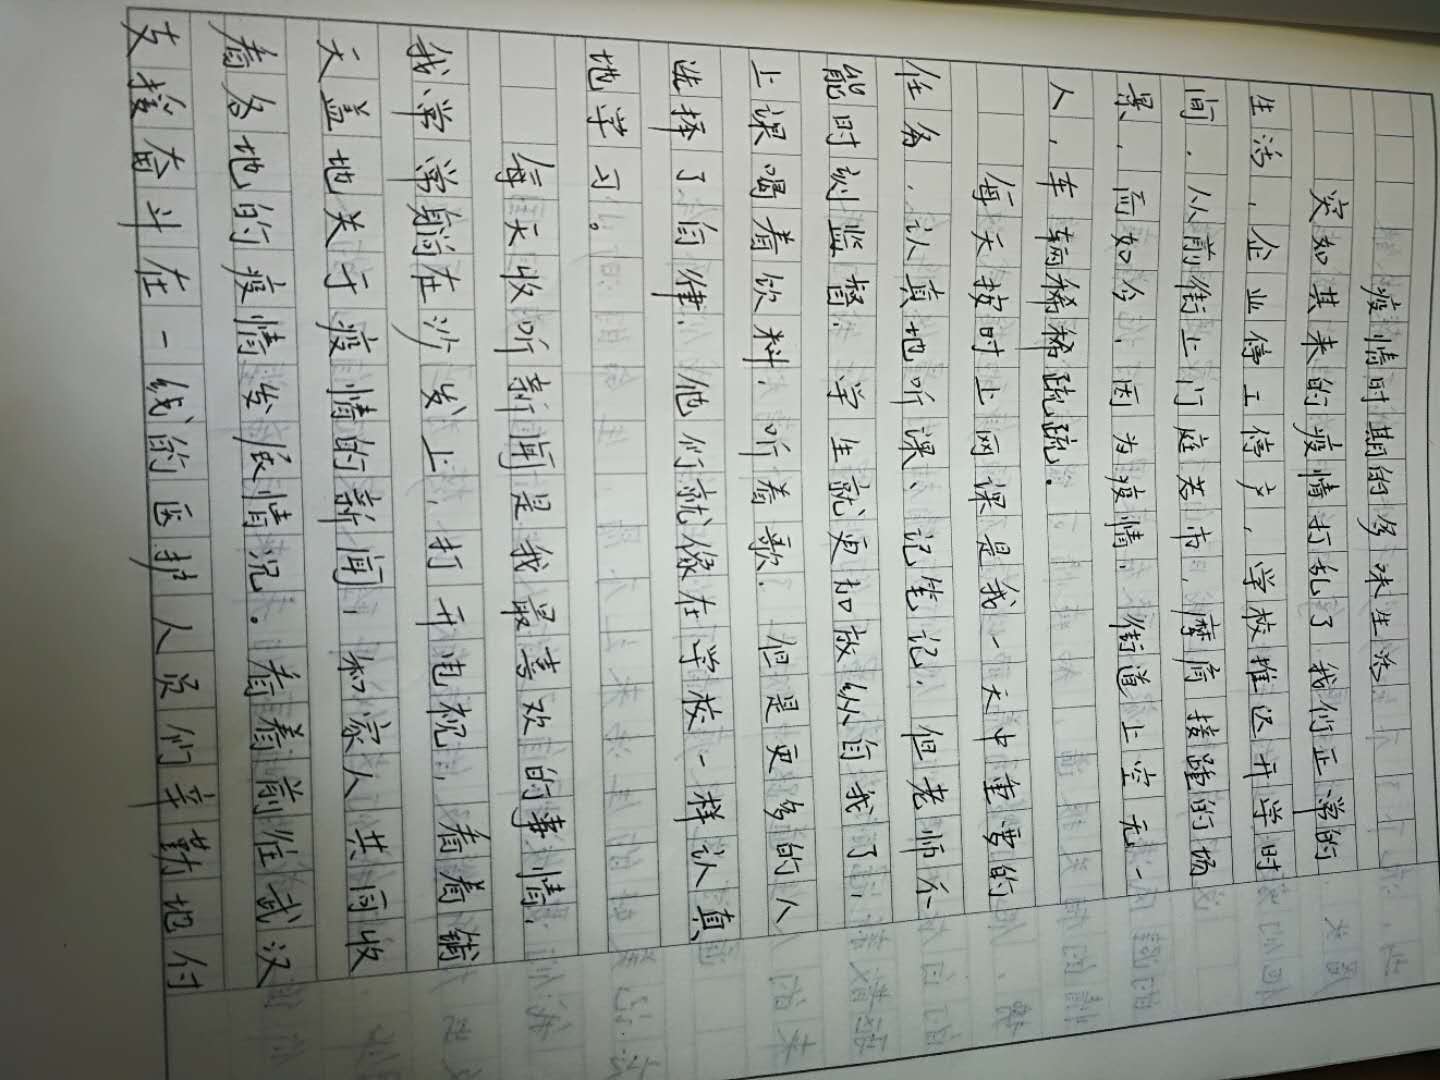 疫情时期的多味生活
突如其来的疫情打乱了我们正常的
生活，企业停工停产，学校推迟开学时
间，从前街上门庭若市，摩肩接踵的场
景，而如今，因为疫情，街道上空无一
人，车辆稀稀疏疏。
每天按时上网课是我一天中重要的
任务，认真地听课、记笔记，但老师不
能时刻监督，学生就更加放纵自我了，
上课喝着饮料，听着歌，但是更多的人
选择了自律，他们就像在学校一样认真
地学习。
每天收听新闻是我最喜欢的事情，
我常常躺在沙发上，打开电视，看着铺
天盖地关于疫情的新闻，和家人共同收
看各地的疫情发展情况。看着前往武汉
支援奋斗在一线的医护人员们辛勤地付